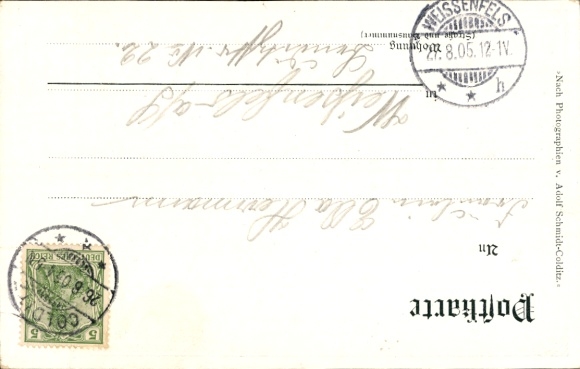 Postkarte
An
Fräulein Ella Herrmann
in
Weißenfels a/S
Wohnung
(Straße und Hausnummer)
No 22.
»Nach Photographien v. Adolf Schmidt-Colditz.«
WEISSENFELS
27.8.05.12-1V.
* * h
DEUTSCHES REICH
5 5
COLDITZ
26.8.05